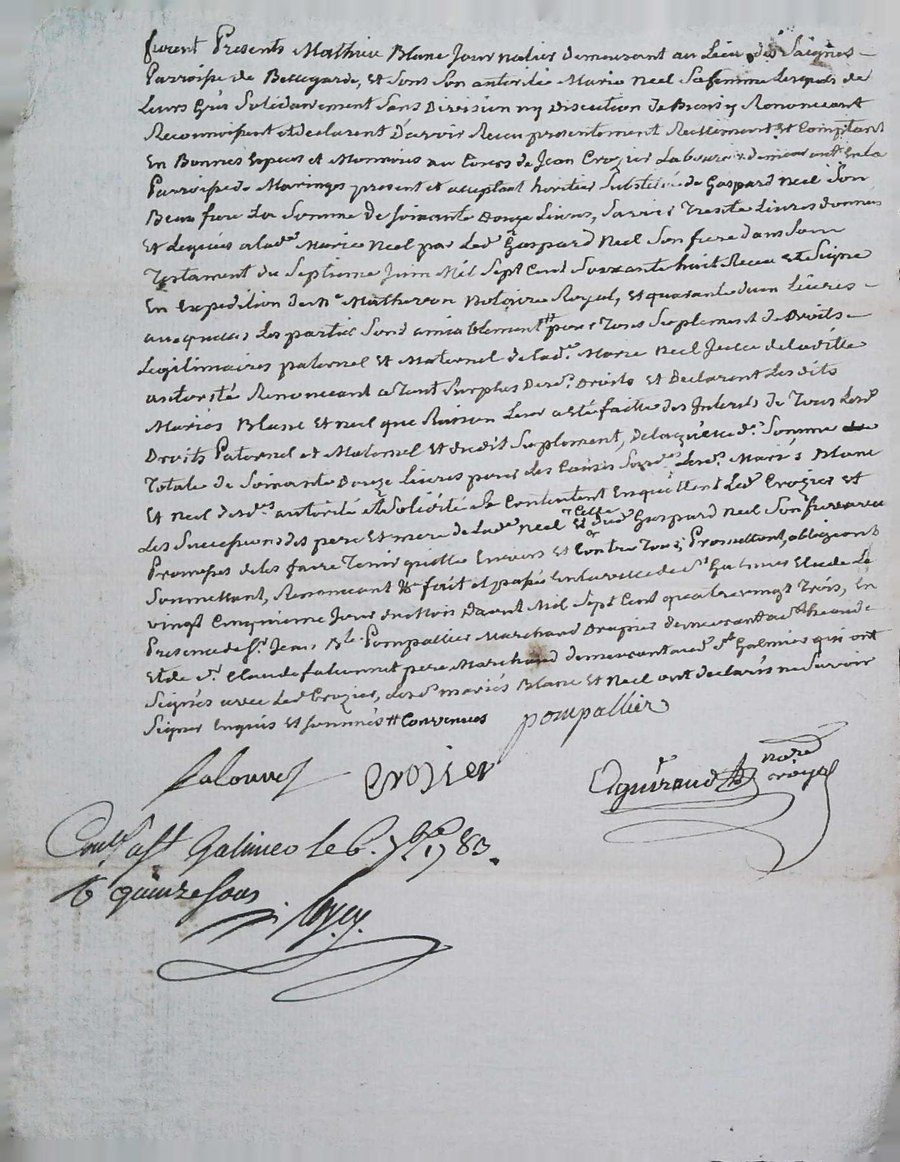 furent Presents Mathieu Blanc Journalier demeurant au Lieu des Saignes
Parroisse de Bellegarde, et Sous Son autorité Marie Neel Safemme Lesquels de
Leurs Grés Solidairement Sans Division ny Discution de Biens y Renonceant
Reconnoissent et declarent D'avoir Recu presentement Reellement et Comptant
En Bonnes Especes et Monnoies au Cours de Jean Crozier Laboureur demeurant En la
Parroisse de Maringes present et aceptant heritier Substitué de Gaspard Neel Son
Beau frere La Somme De Soixante Douze Livres, Savoir Trente Livres donnés
Et Legués alad.e Marie Neel par Led. Gaspard Neel Son frere dans Son
Testament du Septieme Juin Mil Sept Cent Soixante huit Receu et Signe
En Expedition de M.e Matheron Notaire Royal, et quarante deux Livres
auxquelles Les parties Sont amiablement # pour Tous Suplement de Droits
Legitimaires paternel Et Maternel de lad.e Marie Neel Jcelle de laditte
autorité Renonceant a Tout Surplus Desd. Droits et Declarent Les dits
Mariés Blanc Et Neel que Raison Leur a eté faitte des Interets de Tous Lesd.
Droits Paternel et Maternel Et dudit Suplement, De laquelle d.e Somme
Totale de Soixante Douze Livres pour des Causes Susd. Lesd. Mariés Blanc
Et Neel desd.es autorité et Solidité Se Contentent Enquittent Led. Crozier et
Les Successions des pere et mere de Lad.e Neel Et Celle dud. Gaspard Neel Son frere avec
Promesses de les faire Tenir quitte Envers Et Contre Tous, Promettant, obligeant
Soumettant, Renonceant &c fait et passé En la ville de S.t Galmier Etude Le
vingt Cinquieme Jour du Mois Daout Mil Sept Cent quatre vingt Trois, En
Presence de S.r Jean B.te Pompallier Marchand Drapier demeurant au
Et de S.r Claude falconnet pere Marchand demeurant aud. S.t Galmier qui ont
Signés avec Led. Crozier, Lesd. mariés Blanc Et Neel ont declarés ne Savoir
Signer Enquis Et Sommés # Convenues
pompallier
falconnet crozier
guiraud no.re royal
Con.lé a S.t Galmier le 6. 7bre 1783.
R quinze sous